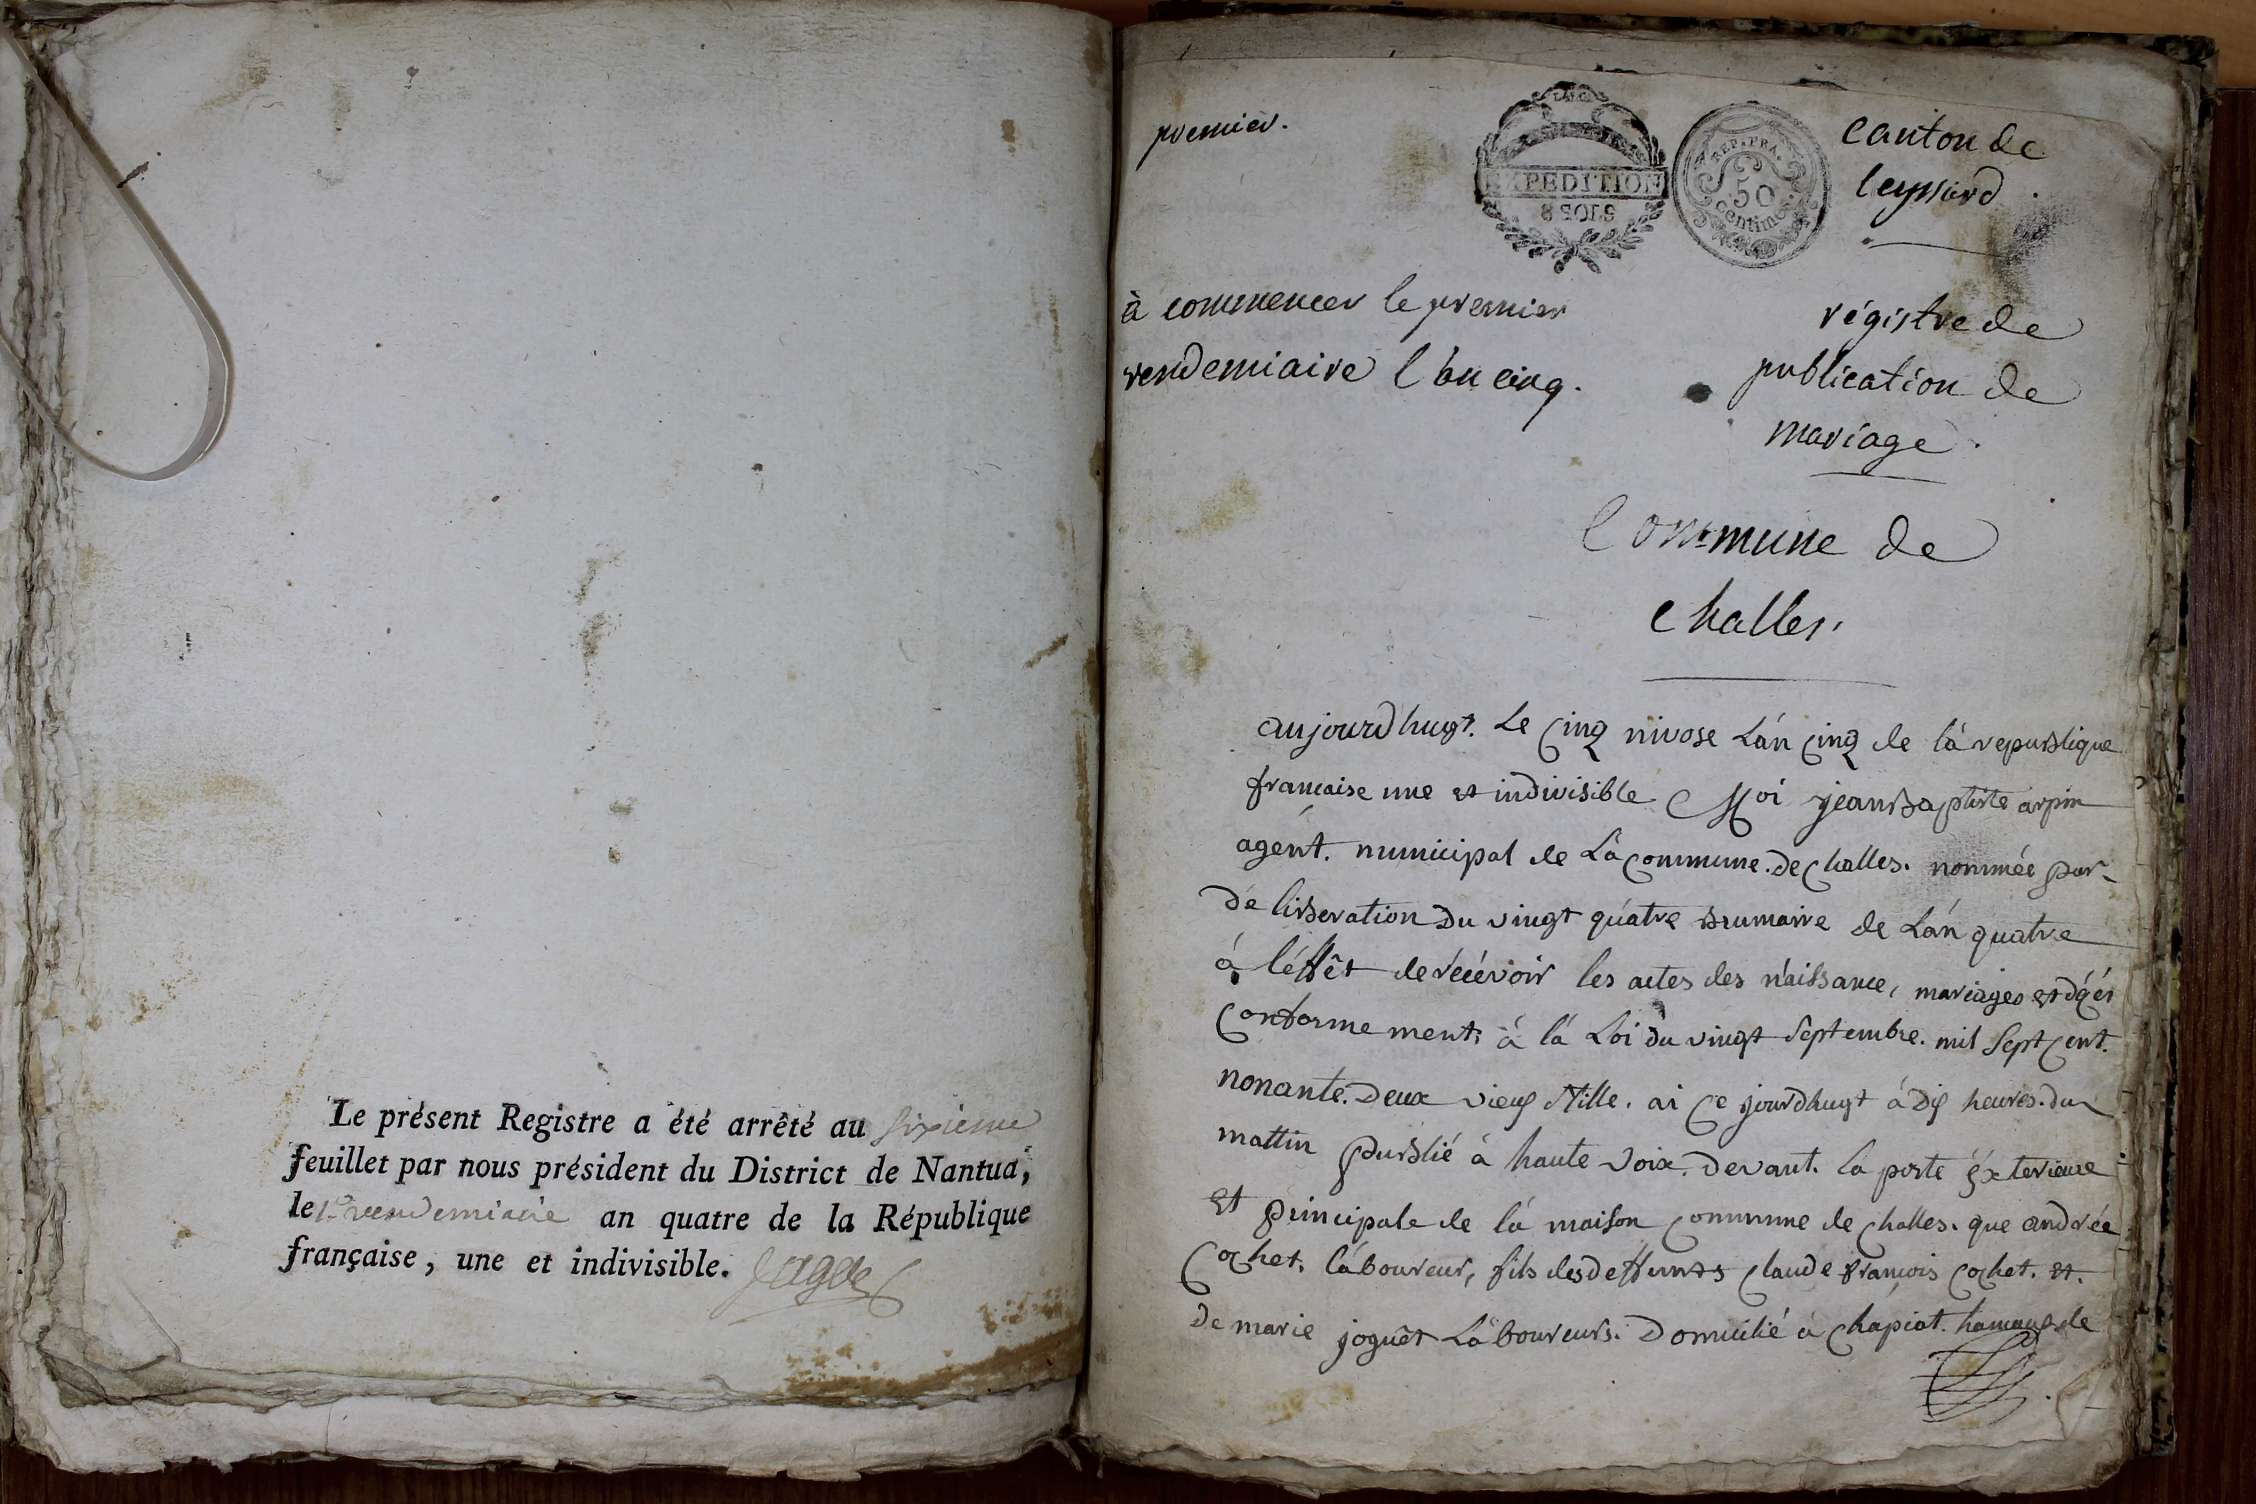 Le présent Registre a été arrêté au sixieme
feuillet par nous président du District de Nantua,
le 1er vendemiaire an quatre de la République
française, une et indivisible.
premier.
EXPEDITION
8 SOLS
REP. FRA.
50
centimes
canton de
leyssard
à commencer le premier
vendemiaire l'an cinq.
régistre de
publication de
mariage.
Commune de
challes.
aujourdhuyt. Le Cinq nivose Lán Cinq de lá republique
francaise une et indivisible Moi jean baptiste arpin
agént. municipal de Lá Commune. de Challes. nommée par
dé libération du vingt quátre brumaire de Lán quatre
á léffêt de récévoir les actes des náissance, mariages et décés
Conforme ment, á lá Loi du vingt Septembre. mil Sept Cent.
nonante. Deux vieux Stille. ai Ce jourdhuyt á Dix heures. du
mattin publié à haute voix. devant. la porte éxterieure
et principale de lá maison Commune de Challes. que andrée
Cochet. láboureur, fils des deffunts Claude françois Cochet. et.
de marie joguêt Láboureurs. Domicilié á Chapiat. hameau de